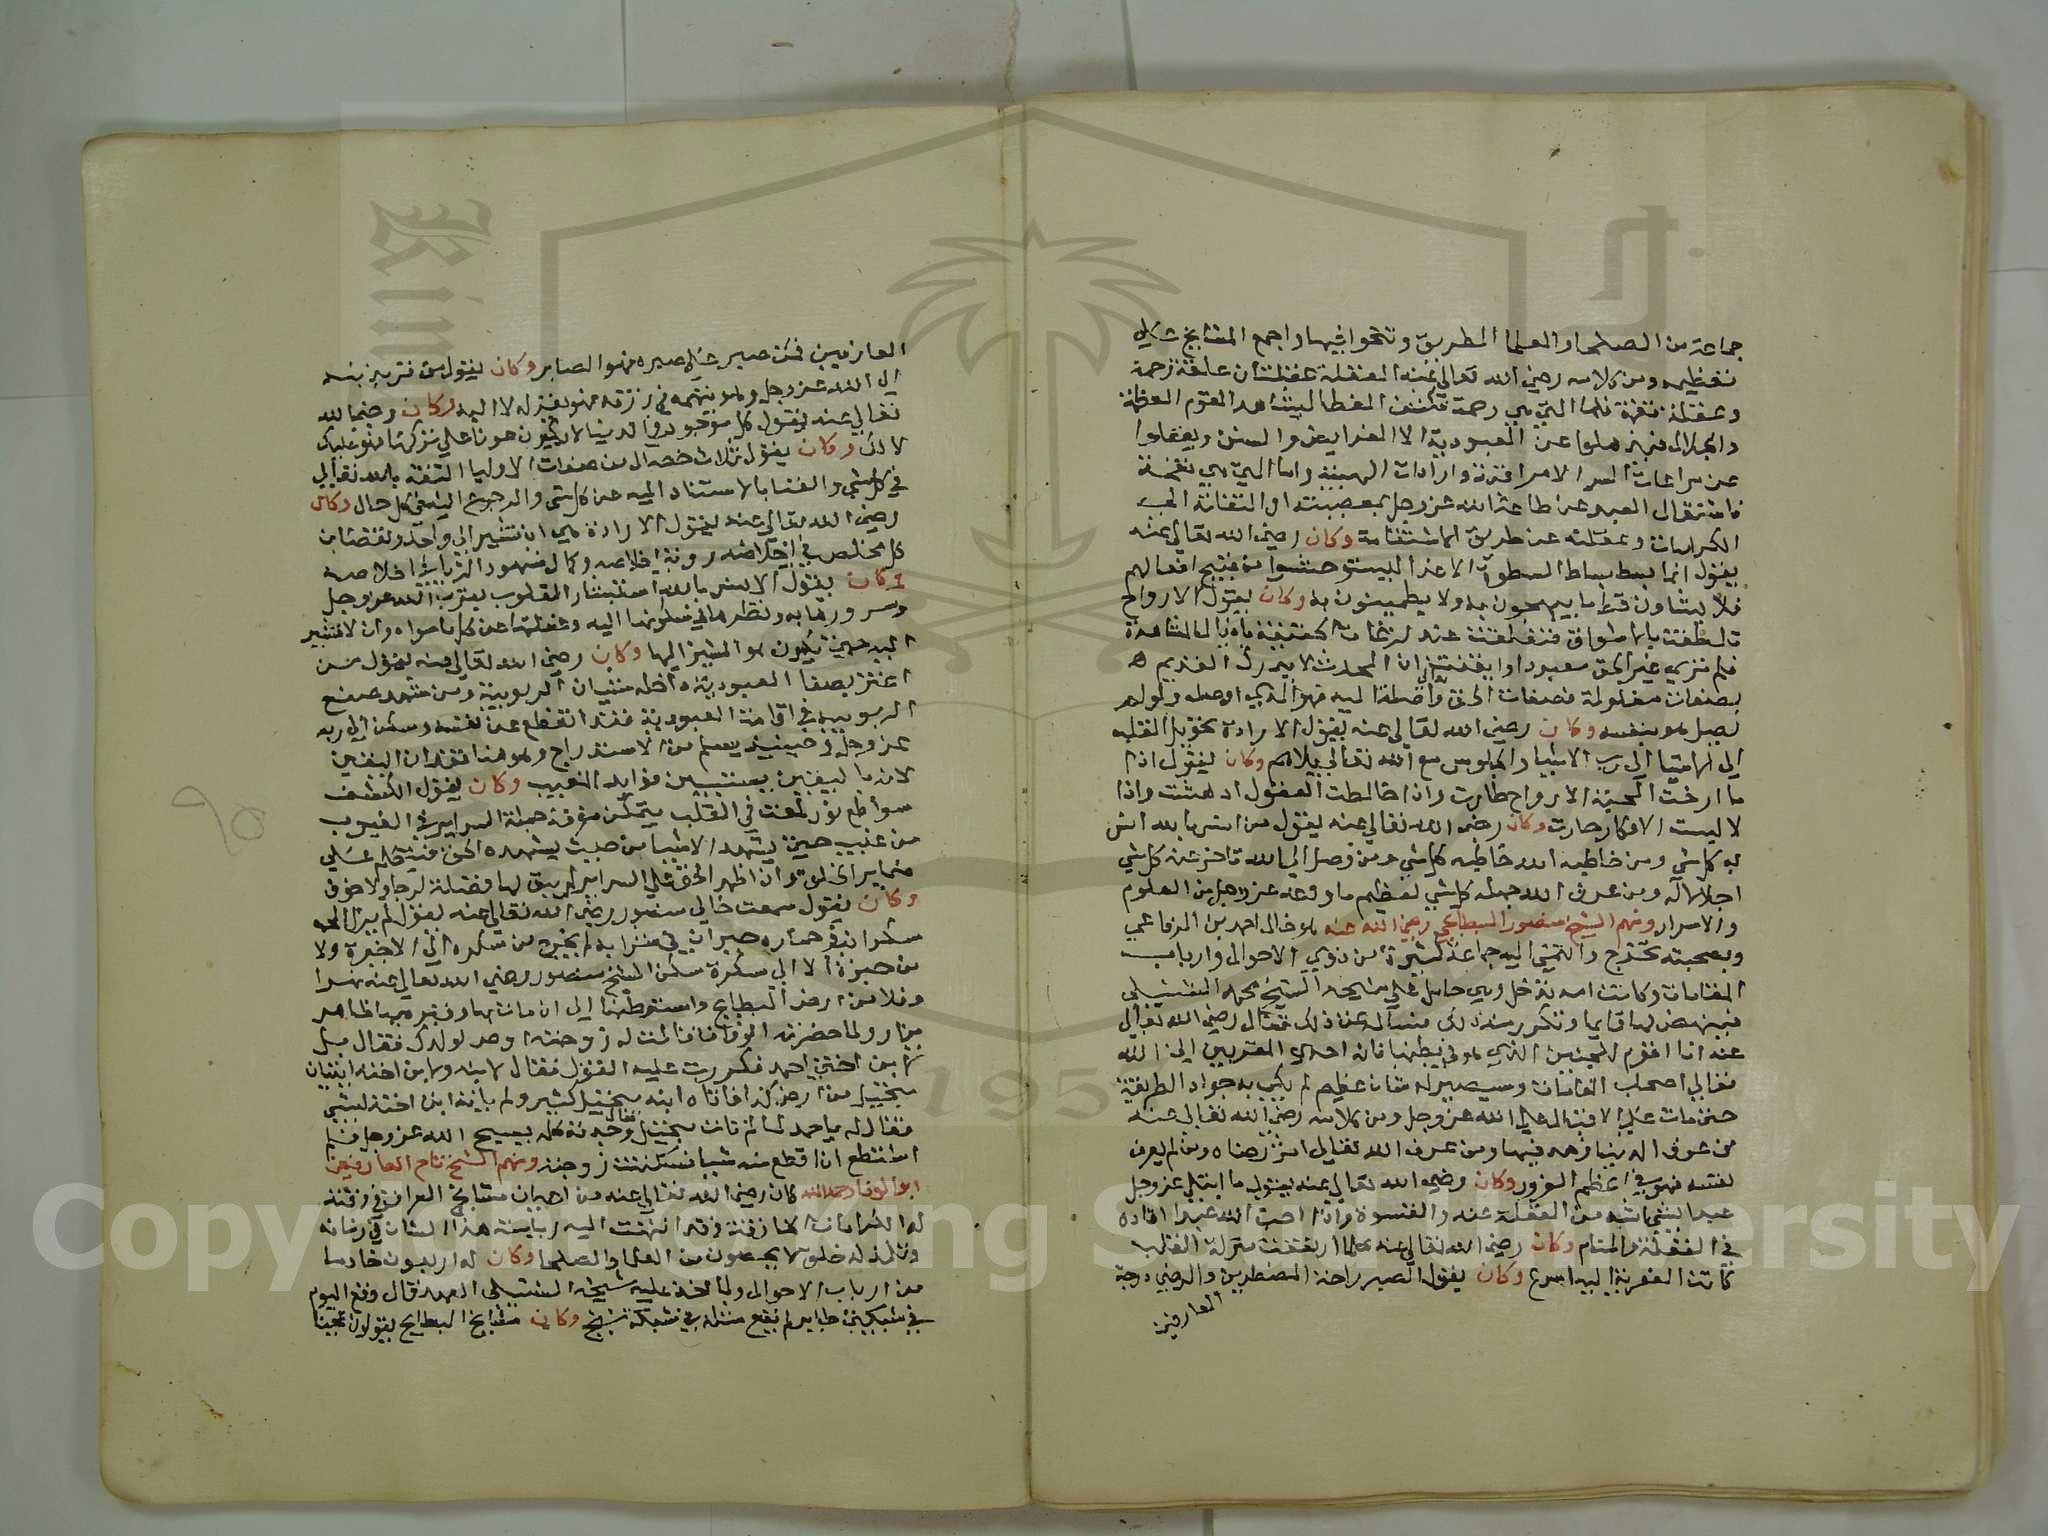 جماعة من الصلحا والعلما الطريق وتخرجوا فيها واجمع المشايخ على
تعظيمه ومن كلامه رضي الله تعالى عنه الغفلة غفلتان غفلة رحمة
وغفلة نقمة فاما التي هي رحمة فكشف الغطا ليشاهد القوم العظمة
والجلال فيذهلوا عن العبودية الا الفرايض والسنن ويغفلوا
عن مراعات السر الا مراقبة واردات الهيبة واما التي هي نقمة
فاشتغال العبد عن طاعة الله عز وجل بمعصيته او التفاته الى
الكرامات وغفلته عن طريق الاستقامة وكان رضي الله تعالى عنه
يقول انما بسط بساط السطوة الاعدا ليستوحشوا من قبيح افعالهم
فلا يشاون قط ما ينهجون به ولا يطمينون به وكان يقول الارواح
تلطفت
فلم تري غير الحق معبودا وايقنت ان المحدث لا يدرك القديم
بصفات معلولة فصفات الحق واصلة اليه فهو الذي اوصله ولولا هو لم
يصل هو بنفسه وكان رضي الله تعالى عنه يقول الارادة تحويل القلب
من الاشيا الى رب الاشيا والجلوس مع الله تعالى بلا هم وكان يقول اذا
مازجت المحبة الارواح طارت واذا خالطت العقول ادهشت واذا
لابست الافكار حارت وكان رضي الله تعالى عنه يقول من انس بالله انس
به كل شي ومن خاطبه الله خاطبه كل شي ومن وصل الى الله تاخر عنه كل شي
اجلالا له ومن عرف الله جهله كل شي لعظيم ما اودعه عز وجل من العلوم
والاسرار ومنهم الشيخ منصور البطايحي رضي الله عنه هو خال احمد بن الرفاعي
وبصحبته تخرج وانتمى اليه جماعة كثيرة من ذوي الاحوال وارباب
المقامات وكانت امه تدخل وهي حامل على شيخه الشيخ محمد الشنبكي
فينهض لها قايما وتكرر منه ذلك فسالوه عن ذلك فقال رضي الله تعالى
عنه انا اقوم للجنين الذي هو في بطنها فانه احد المقربين الى الله
تعالى اصحاب المقامات وسيصير له شان عظيم لم يكب به جواد الطريقة
حتى مات على الاقبال على الله عز وجل ومن كلامه رضي الله تعالى عنه
من عرف الدنيا زهد فيها ومن عرف الله تعالى اثر رضاه ومن لم يعرف
نفسه فهو في اعظم الغرور وكان رضي الله تعالى عنه يقول ما ابتلى عز وجل
عبدا بشي اشد من الغفلة عنه والقسوة واذا احب الله عبدا افاده
في اليقظة والمنام وكان رضي الله تعالى عنه كلما ارتفعت منزلة القلب
كانت العقوبة اليه اسرع وكان يقول الصبر راحة المضطرين والرضي درجة
العارفين
العارفين فمن صبر على صبره فهو الصابر وكان يقول من فر بدينه
الى الله عز وجل وهو يتهمه في رزقه فهو يفر له لا اليه وكان رضي الله
تعالى عنه يقول كل موجود في الدنيا لا يكون عونا على تركها فهو عليك
لا لك وكان يقول ثلاث خصال من صفات الاوليا الثقة بالله تعالى
في كل شي والغنا بالاستناد اليه عن كل شي والرجوع اليه في كل حال وكان
رضي الله تعالى عنه يقول الارادة هي ان تشير الى واحد ونقصان
كل مخلص في اخلاصه روية اخلاصه وكمال شهود الريا في اخلاصه
وكان يقول الانس بالله استبشار القلوب بقرب الله عز وجل
وسرورها به ونظرها في سكونها اليه وغفلتها عن كل ما سواه وان لا تشير
اليه حتى يكون هو المشير اليها وكان رضي الله تعالى عنه يقول من
اغتر بصفا العبودية داخله نسيان الربوبية ومن شهد صنع
الربوبية في اقامة العبودية فقد انقطع عن نفسه وسكن الى ربه
عز وجل وحينيذ يسلم من الاستدراج وهو هنا فقدان اليقين
لان ما ليقين يستبين فوايد الغيب وكان يقول الكشف
سواطع نور لمعت في القلب بتمكن معرفة حملة السراير في الغيوب
من غيب حتى يشهد الاشيا من حيث يشهده الحق فيتكلم على
ضماير الخلق واذا ظهر الحق على السراير لم يبق لها فضلة لرجا ولا خوف
وكان يقول سمعت خالي منصور رضي الله تعالى عنه يقول لم يزل المحب
سكران في خماره حيران في شرابه لا يخرج من سكره الا الى حيرة ولا
من حيرة الا الى سكرة سكن الشيخ منصور رضي الله تعالى عنه نهر
دقلا من ارض البطايح واستوطنها الى ان مات بها وقبره بها ظاهر
يزار ولما حضرته الوفاة قالت له زوجته اوص لولدك فقال بل
لابن اختي احمد فكررت عليه القول فقال لابنه ولابن اخته ايتياني
بنخيل من ارض كذا فاتاه ابنه بنخيل كثير ولم ياته ابن اخته بشي
فقال له يا احمد لما لم تات بنخيل فقال وجدته كله يسبح الله عز وجل فلم
استطع ان اقطع منه شيا فسكتت زوجته ومنهم الشيخ تاج العارفين
ابو الوفا رحمه الله كان رضي الله تعالى عنه من اعيان مشايخ العراق في وقته
له الكرامات الخارقة وقد انتهت اليه رياسة هذا الشان في زمانه
وتلمذ له خلق لا يحصون من العلما والصلحا وكان له اربعون خادما
من ارباب الاحوال ولما اخذ عليه شيخه الشنبكي العهد قال وقع اليوم
في شبكتي طاير لم يقع مثله في شبكة شيخ وكان مشايخ البطايح يقولون عجبنا